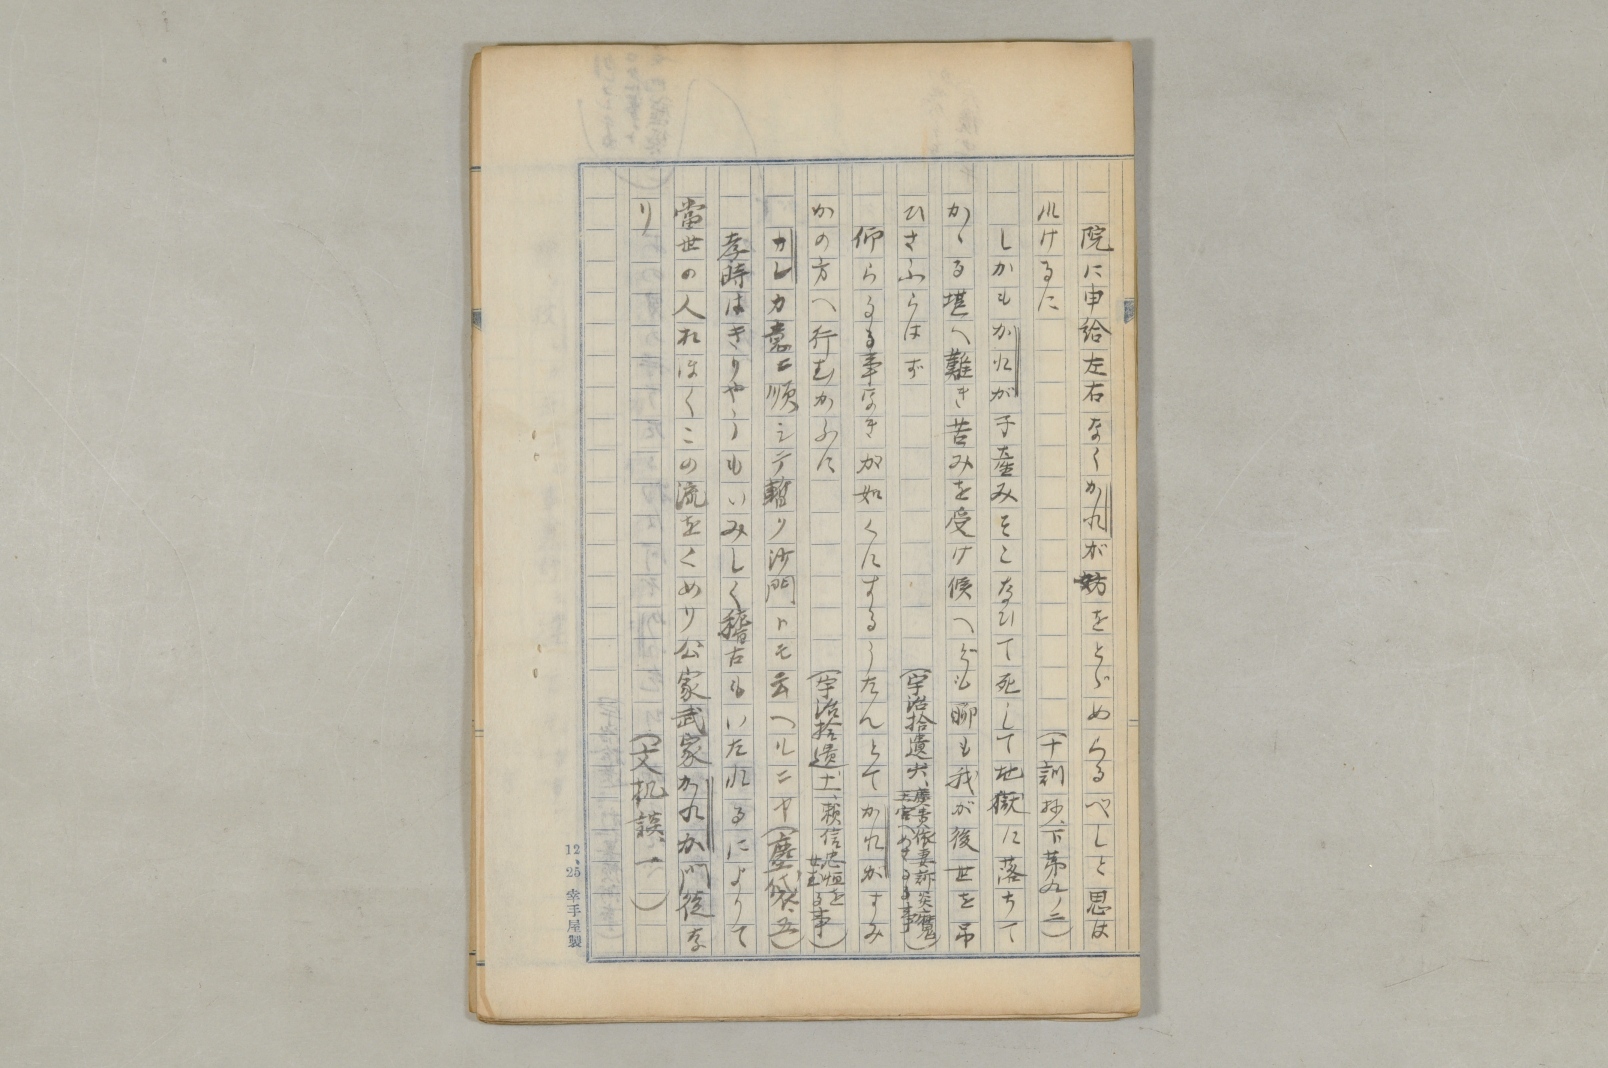 院に申給左右なくかれが妨をとゞめらるべしと思は
れけるに　（十訓抄、下第九ノ二）
しかもかれが子産みそこなひて死して地獄に落ちて
かゝる堪へ難き苦みを受け候へども聊も我が後世を弔
ひさふらはず　（宇治拾遺
仰らるゝ事なきか如くにするうたんとてかれがすみ
かの方へ行むかふに　（宇治拾遺十一、頼信忠恒を
せむる事）
カレカ意ニ順シテ暫ク沙門トモ云ヘルニヤ（塵袋、五）
孝時はきりやうもいみしく稽古もいたれるによりて
當世の人おほくこの流をくめり公家武家かれか門徒な
り　（文机談、一）
12、25 幸手屋製